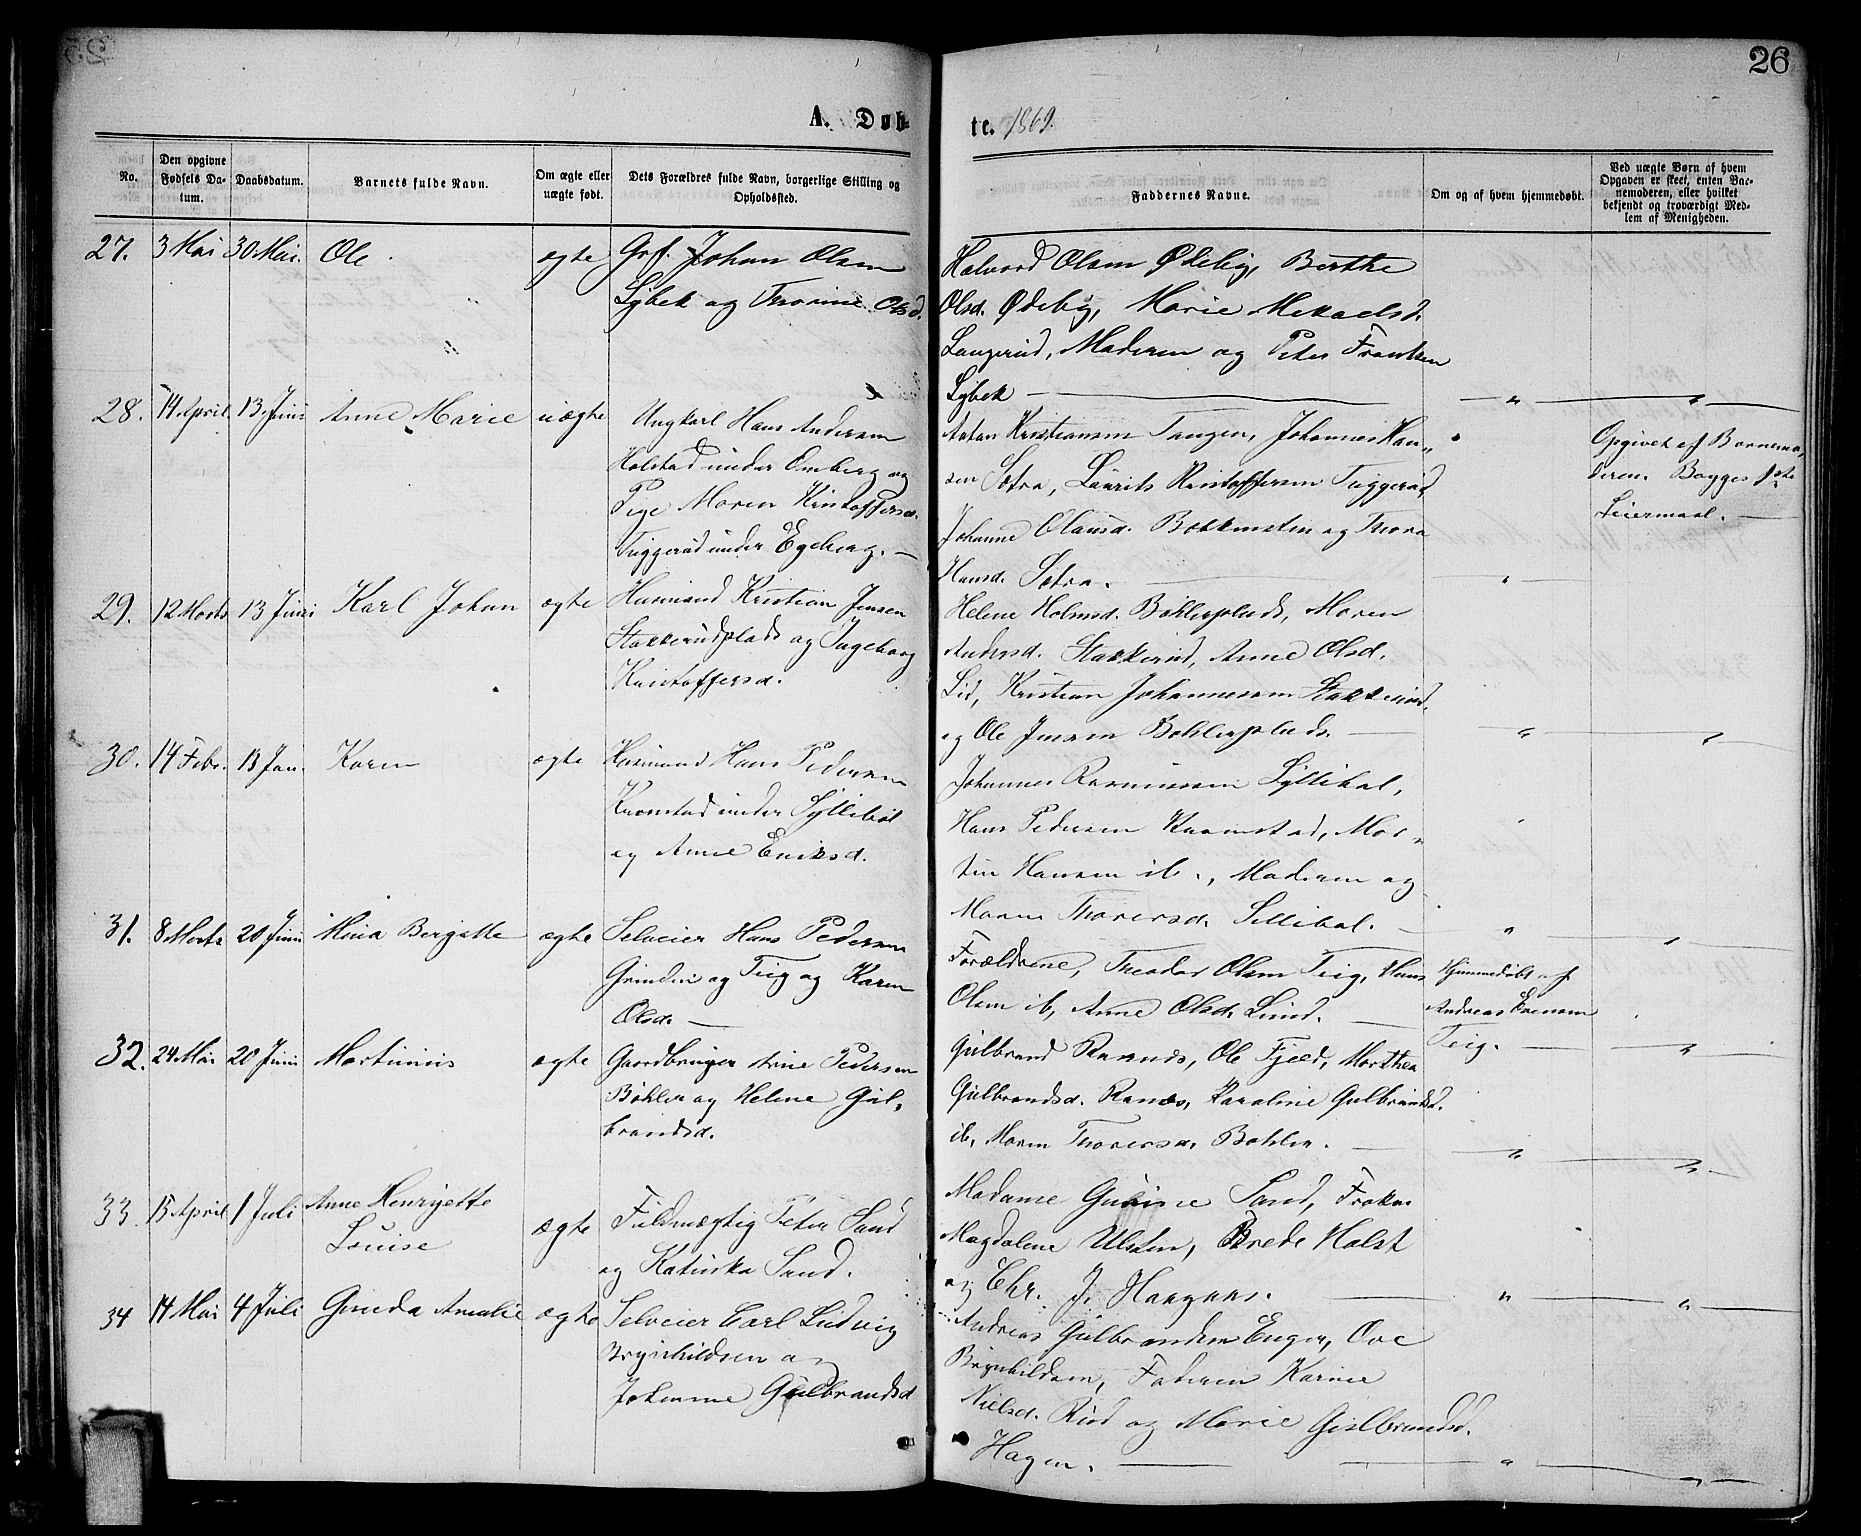 26
A. Døb-
te. 1869.
No.
Den opgivne Fødsels Da-
tum.
Daabsdatum.
Barnets fulde Navn.
Om ægte eller
uægte født.
Dets Forældres fulde Navn, borgerlige Stilling og
Opholdssted.
Faddernes Navne.
Om og af hvem hjemmedøbt.
Ved uægte Børn af hvem
Opgaven er skeet, enten Bar-
nemoderen, eller hvilket
bekjendt og troværdigt Med-
lem af Menigheden.
27. 3 Mai 30 Mai. Ole ægte Grf. Johan Olsen
Lybek og Thorine Olsd.
Halvord Olsen Ødeby, Berthe
Olsd. Ødeby, Marie Mekaelsd.
Langerud, Moderen og Peter Frantsen
Lybek — „ — „ —
28. 14 April. 13 Juni Anne Marie uægte Ungkarl Hans Andersen
Holstad under Omberg og
Pige Maren Kristoffersd.
Tuggerud under Egeberg. —
Anton Kristiansen Tangen, Johannes Han-
sen Sætra, Laurits Kristoffersen Tuggerud,
Johanne Olausd. Bakkensten og Thora
Hansd. Sætra. — „ —
Opgivet af Barnemo-
deren. Begges 1ste
Leiermaal. —
29. 12 Marts 13 Juni Karl Johan ægte Husmand Kristian Jensen
Stakkerudplads og Ingeborg
Kristoffersd.
Helene Holmsd. Bøhlerplads, Maren
Andersd. Stakkerud, Anne Olsd.
Lid, Kristian Johannesen Stakkerud,
og Ole Jensen Bøhlerplads. — „ — „
30. 14 Febr. 13 Jun. Karen ægte Husmand Hans Pedersen
Kromstad under Syllibøl
og Anne Eriksd.
Johannes Rasmussen Syllibøl,
Hans Pedersen Kromstad, Mar-
tin Hansen ib., Moderen og
Maren Thorersd. Sillibøl. — „ — „ —
31. 8 Marts 20 Juni Mina Bergitte ægte Selveier Hans Pedersen
Grinden og Teig og Karen
Olsd. —
Forældrene, Theodor Olsen Teig, Hans
Olsen ib, Anne Olsd. Lund. —
Hjemmedøbt af
Andreas Evensen
Teig. — „ —
32. 24 Mai 20 Juni Martinius ægte Gaardbruger Arne Pedersen
Bøhler og Helene Gul-
brandsd.
Gulbrand Ranæs, Ole Fjeld, Marthea
Gulbrandsd. Ranæs, Karoline Gulbrandsd.
ib, Maren Thorersd. Bøhler. — „ — „ —
33. 15 April 1 Juli Anne Henryette
Louise ægte Fuldmægtig Peter Sand
og Katinka Sand.
Madame Gusine Sand, Frøken
Magdalene Ulsten, Brede Holst
og Chr. J. Haagaas. — „ — „ —
34 14 Mai 4 Juli Gineda Amalie ægte Selveier Carl Ludvig
Brynhildsen og
Johanne Gulbrandsd
Andreas Gulbrandsen Enger, Ove
Brynhildsen, Faderen Karine
Nielsd. Ruud og Marie Gislbrandsd.
Hagen. — „ — „ —